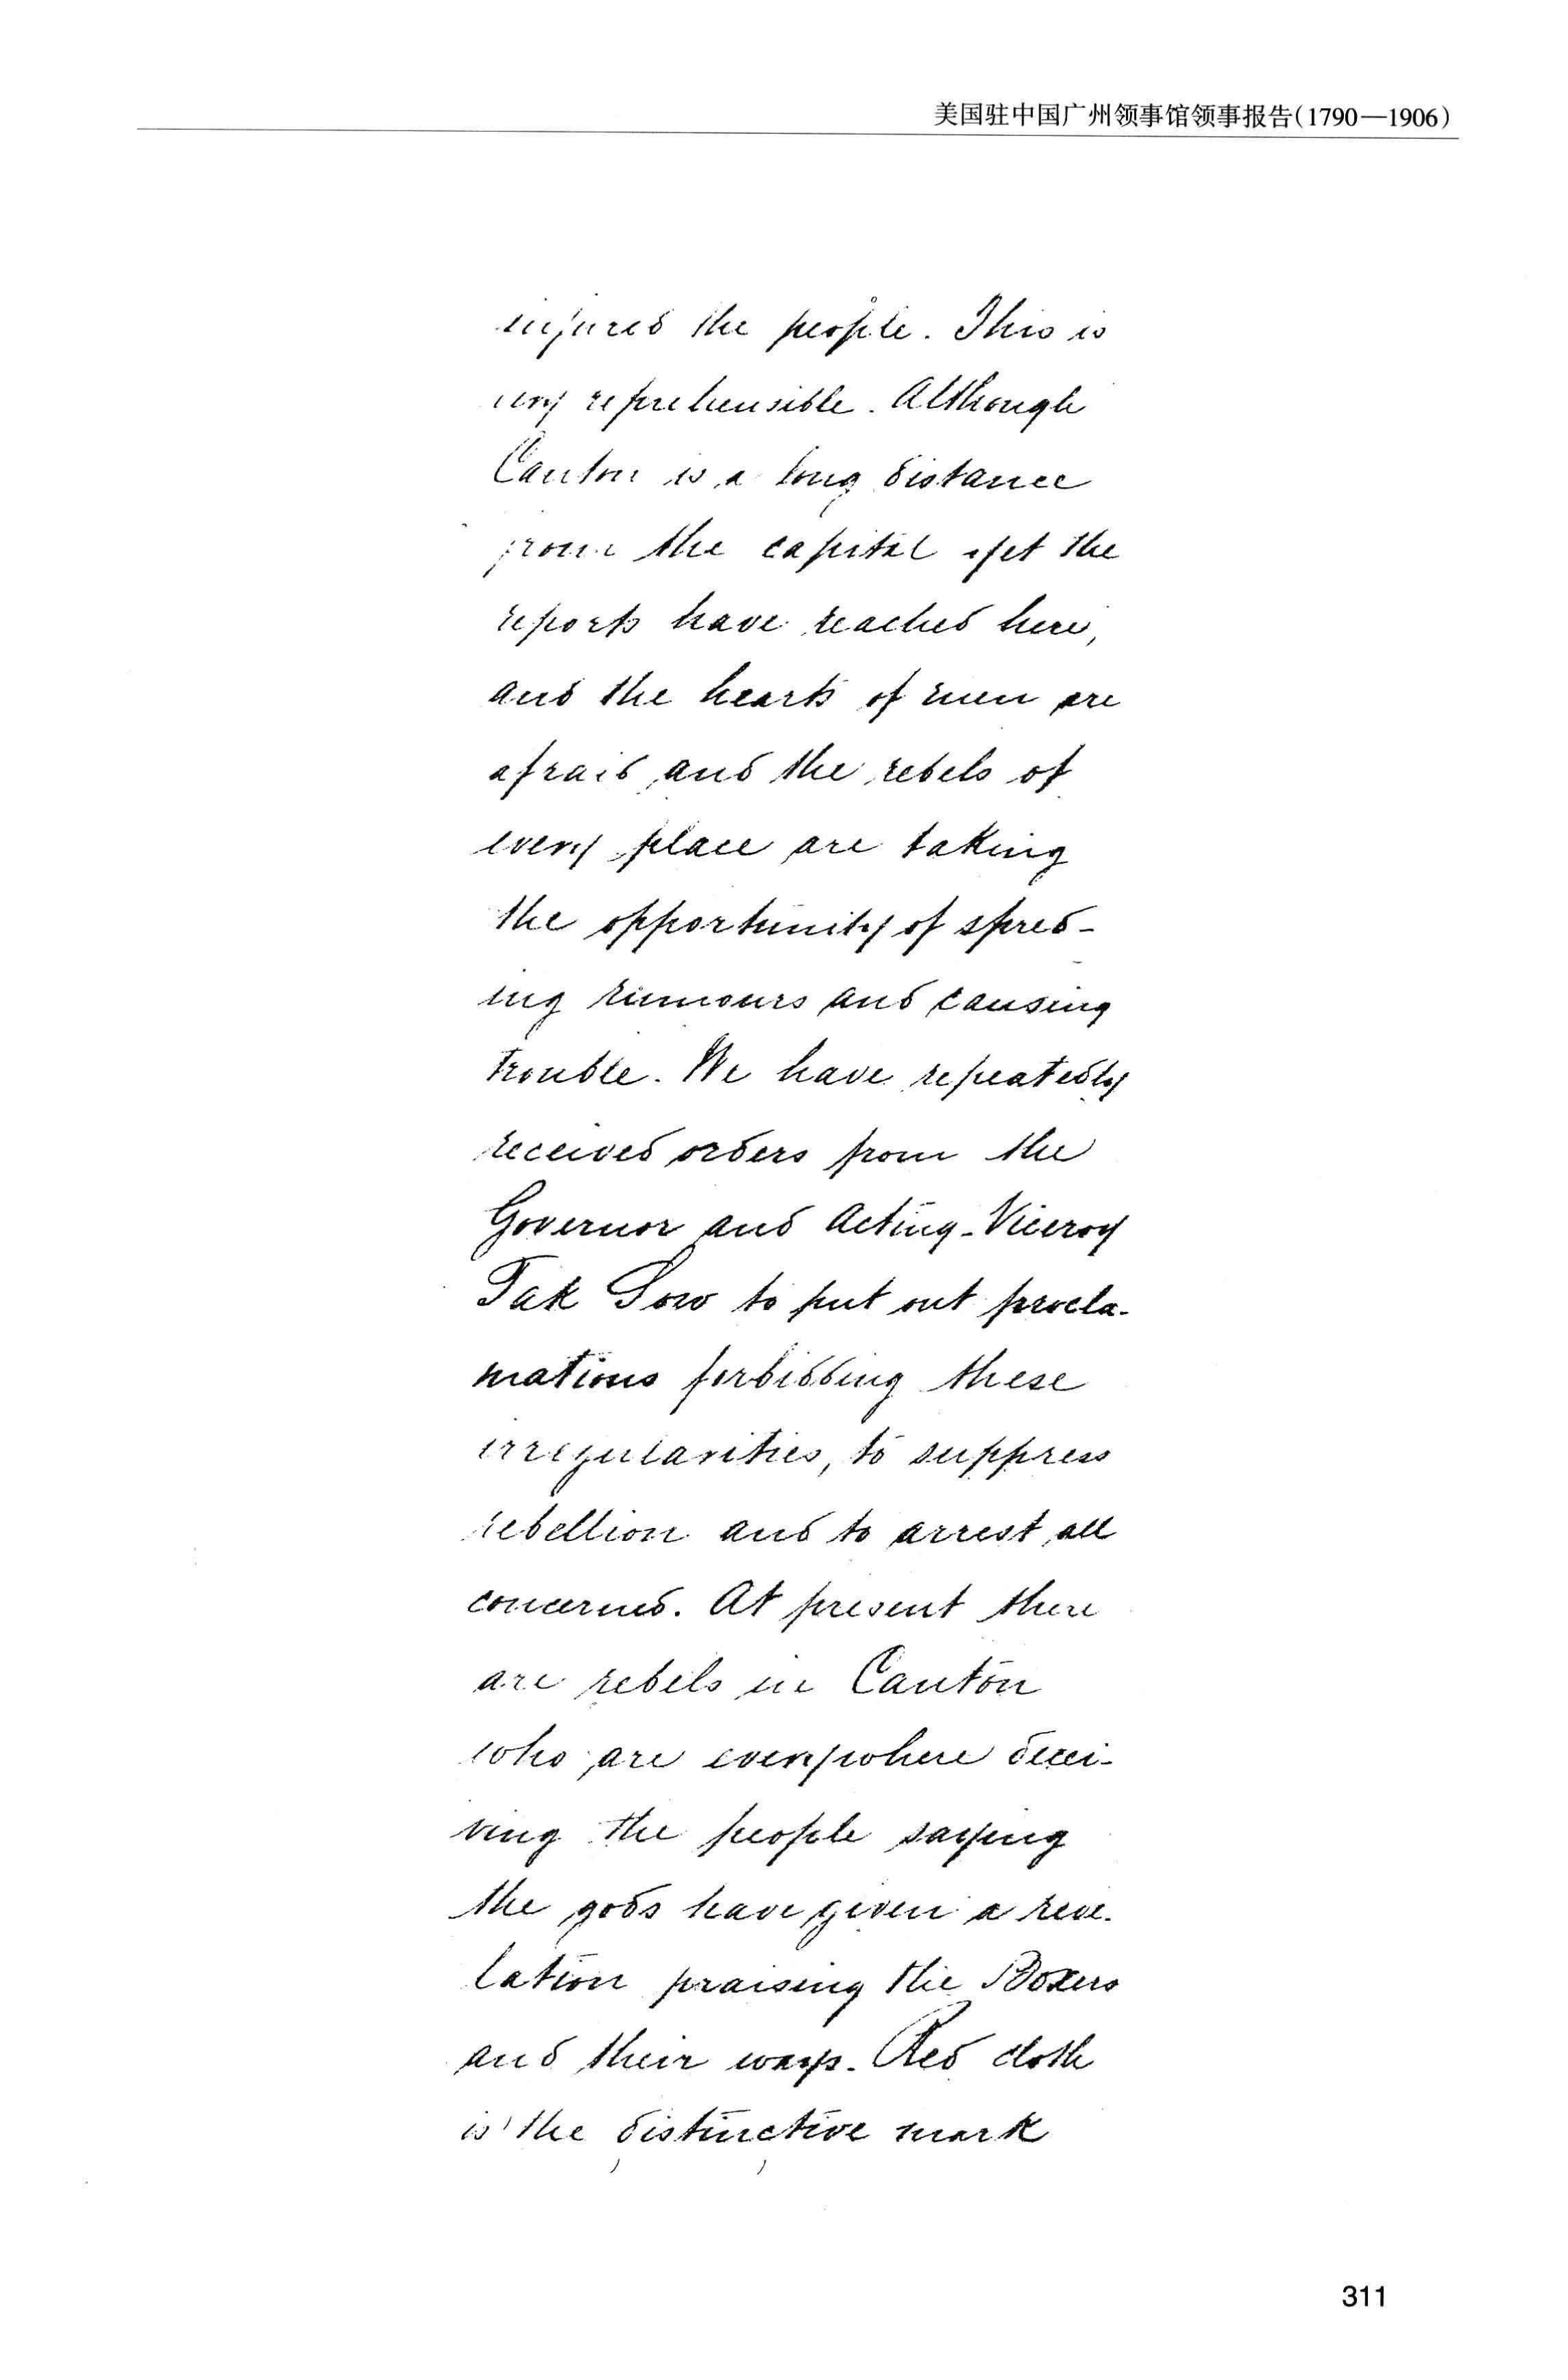 美国驻中国广州领事馆领事报告(1790—1906)
injured the people. This is
very reprehensible. Although
Canton is a long distance
from the capital yet the
reports have reached here,
and the hearts of men are
afraid and the rebels of
every place are taking
the opportunity of spred-
ing rumours and causing
trouble. We have repeatedly
received orders from the
Governor and Acting-Viceroy
Tak Sow to put out procla-
mations forbidding these
irregularities, to suppress
rebellion and to arrest all
concerned. At present there
are rebels in Canton
who are everywhere decei-
ving the people saying
the gods have given a reve-
lation praising the Boxers
and their ways. Red cloth
is the distinctive mark
311